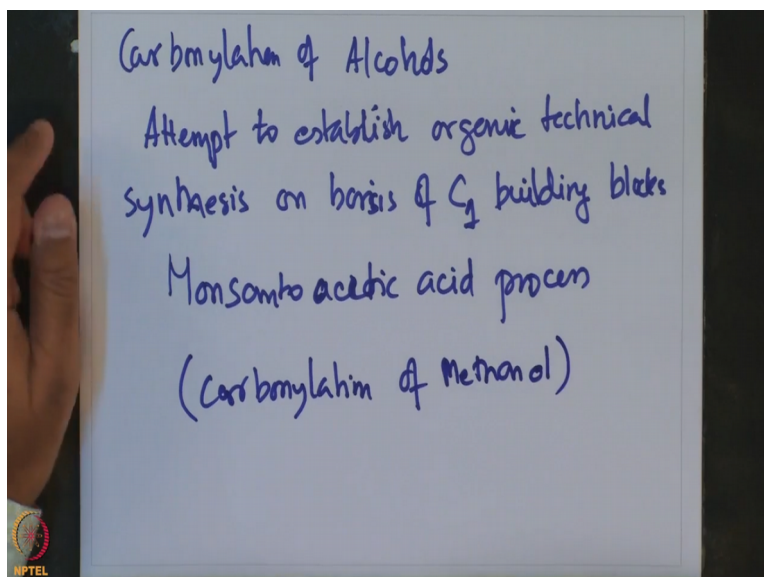 Carbonylation of Alcohols
Attempt to establish organic technical
synthesis on basis of C1 building blocks
Monsanto acetic acid process
(Carbonylation of Methanol)
NPTEL